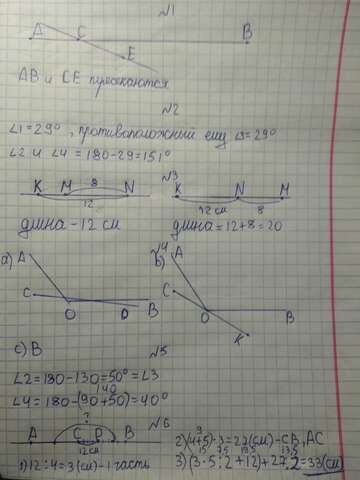 №1
A C B
E
AB и CE пересекаются
№2
∠1=29°, противоположный ему ∠3=29°
∠2 и ∠4 = 180-29=151°
№3
K M 8 N K N M
12 12 см 8
длина - 12 см длина = 12+8=20
№4
a) A b) A
C C
O D B O B
K
c) B
№5
∠2=180-130=50°=∠3
∠4=180-(90+50)=40°
№6
?
A C D B
12см
1) 12:4=3(см)-1 часть
2) (4+5)·3=27(см)-CB, AC
3) (3·5:2+12)+27:2=33(см)